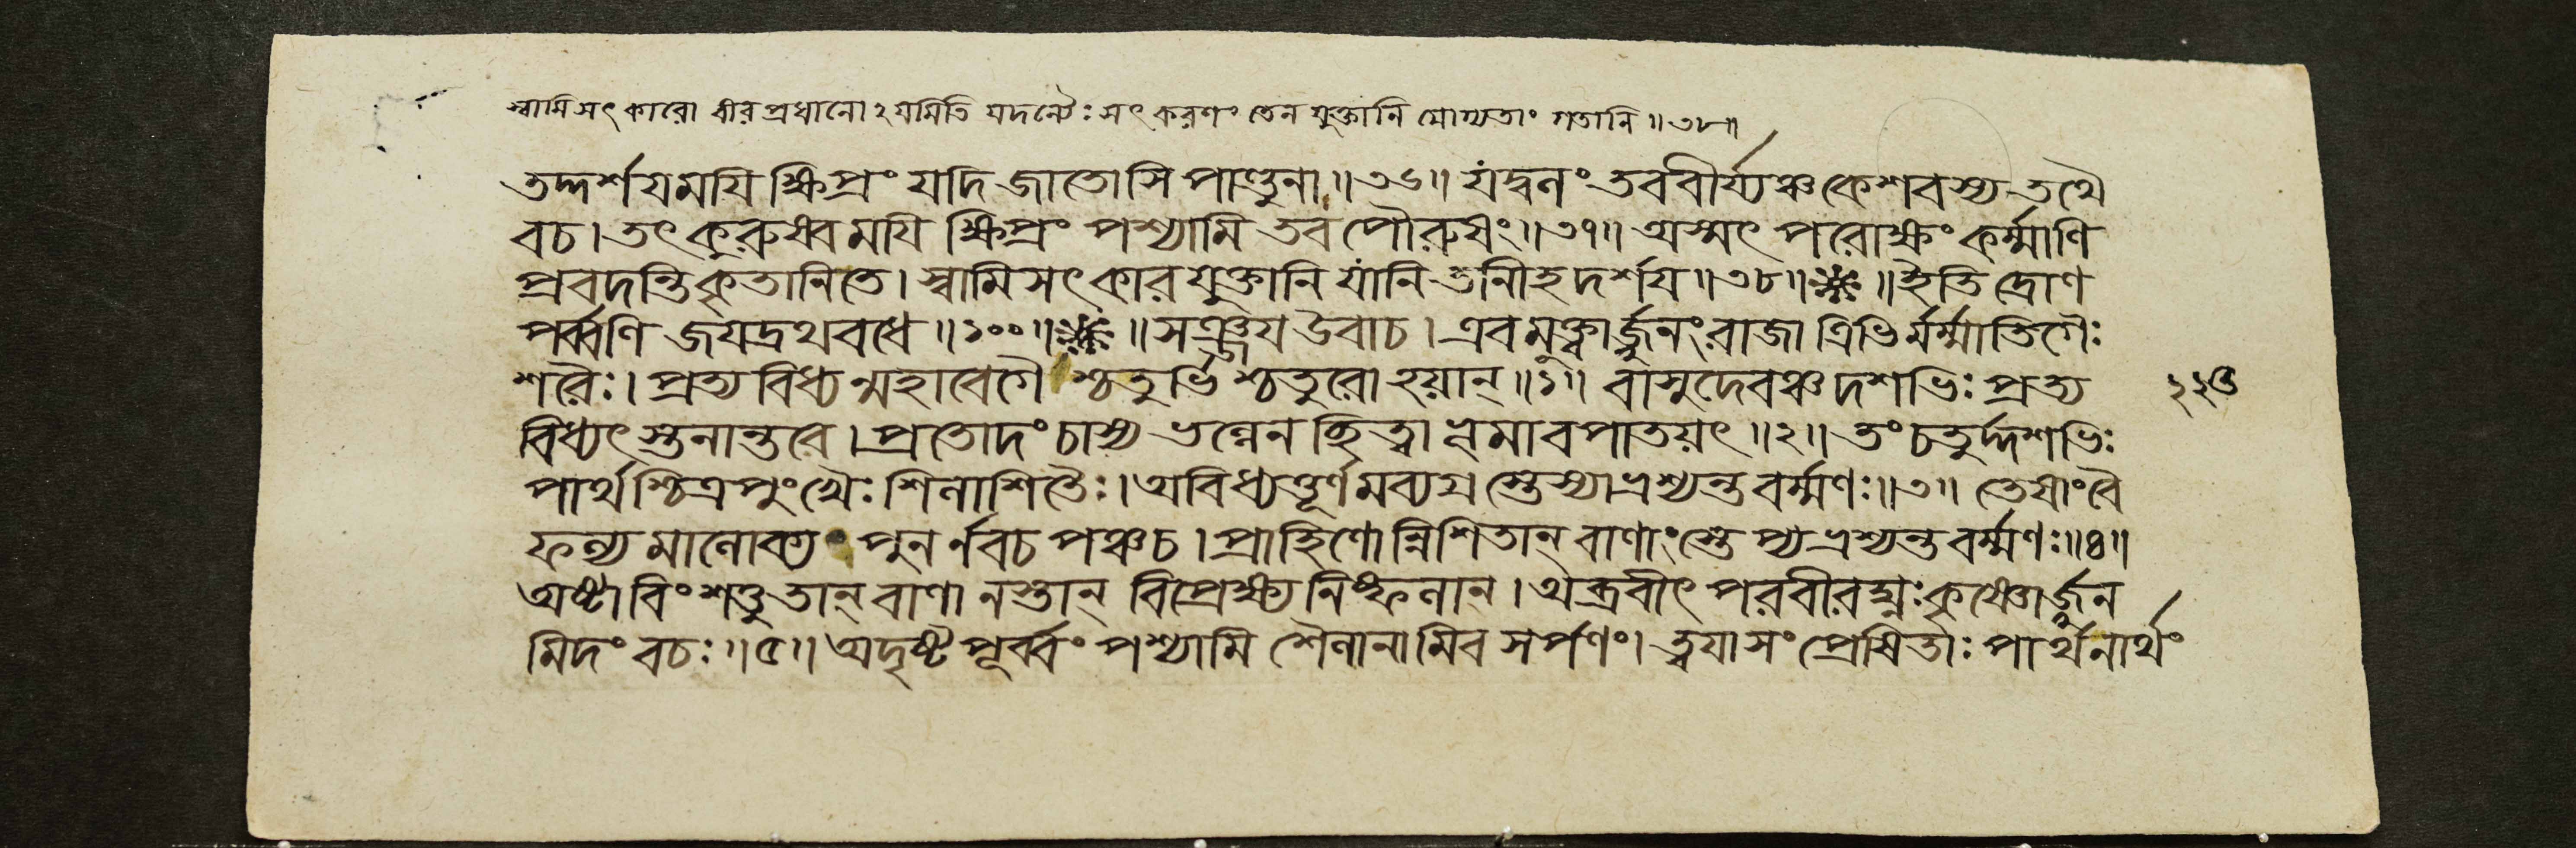 স্বামিসৎকারো বীরপ্রধানোঽযমিতি যদন্যৈঃ সৎকরণং তেন যুক্তানি যোগ্যতাং গতানি॥৩৮॥
তদ্দর্শযমযি ক্ষিপ্রং যদি জাতোসি পাণ্ডুনা॥৩৬॥ যদ্বলং তববীর্য্যঞ্চ কেশবস্য তথৈ
বচ। তৎ কুরুষ্ব মযি ক্ষিপ্রং পশ্যামি তব পৌরুষং॥৩৭॥ অস্মৎ পরোক্ষং কর্ম্মাণি
প্রবদন্তি কৃতানি তে। স্বামিসৎকারযুক্তানি যানি তানীহ দর্শয॥৩৮॥ ॥ইতি দ্রোণ
পর্ব্বণি জযদ্রথবধে॥১০০॥ ॥সঞ্জয উবাচ। এবমুক্ত্বার্জ্জুনং রাজা ত্রিভির্মর্ম্মাতিগৈঃ
শরৈঃ। প্রত্যবিধ্যন্মহাবেগৈশ্চতুর্ভিশ্চতুরো হযান্॥১॥ বাসুদেবঞ্চ দশভিঃ প্রত্য
বিধ্যৎ স্তনান্তরে। প্রতোদং চাস্য ভল্লেন ছিত্বা ভূমাবপাতয়ৎ॥২॥ তং চতুর্দ্দশভিঃ
পার্থশ্চিত্রপুংখৈঃ শিলাশিতৈঃ। অবিধ্যত্তূর্ণমব্যগ্রস্তেস্যাভ্রশ্যন্ত বর্ম্মণঃ॥৩॥ তেষাং বৈ
ফল্যমালোক্য পুনর্নবচ পঞ্চচ। প্রাহিণোন্নিশিতান্ বাণাংস্তে প্যভ্রশ্যন্ত বর্ম্মণঃ॥৪॥
অষ্টাবিংশত্তু তান্ বাণানস্তান্ বিপ্রেক্ষ্য নিষ্ফলান্। অব্রবীৎ পরবীরঘ্নঃ কৃষ্ণোর্জ্জুন
মিদং বচঃ॥৫॥ অদৃষ্টপূর্ব্বং পশ্যামি শৈলানামিব সর্পণং। ত্বযা সংপ্রেষিতাঃ পার্থ নার্থং